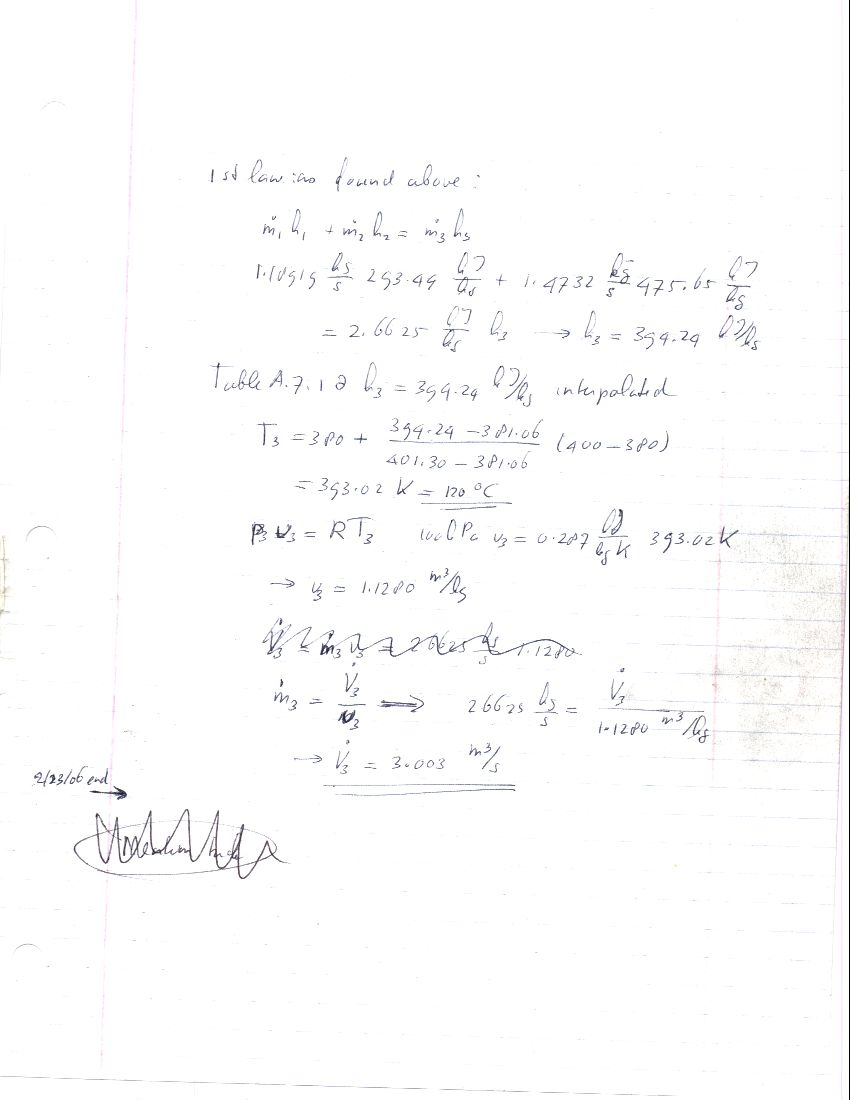 1st law as found above:
ṁ₁ h₁ + ṁ₂ h₂ = ṁ₃ h₃
1.18919 kg/s 293.49 kJ/kg + 1.4732 kg/s 475.65 kJ/kg
= 2.6625 kJ/kg h₃ → h₃ = 394.24 kJ/kg
Table A.7.1 @ h₃ = 394.24 kJ/kg interpolated
T₃ = 380 + (394.24 - 381.06)/(401.30 - 381.06) (400 - 380)
= 393.02 K = 120 °C
P₃ v₃ = RT₃ 100 kPa v₃ = 0.287 kJ/kg K 393.02 K
→ v₃ = 1.1280 m³/kg
V̇₃ = ṁ₃ v₃ = 26625 kg/s 1.1280
ṁ₃ = V̇₃/v₃ ⟹ 26625 kg/s = V̇₃/1.1280 m³/kg
→ V̇₃ = 3.003 m³/s
2/23/06 end →